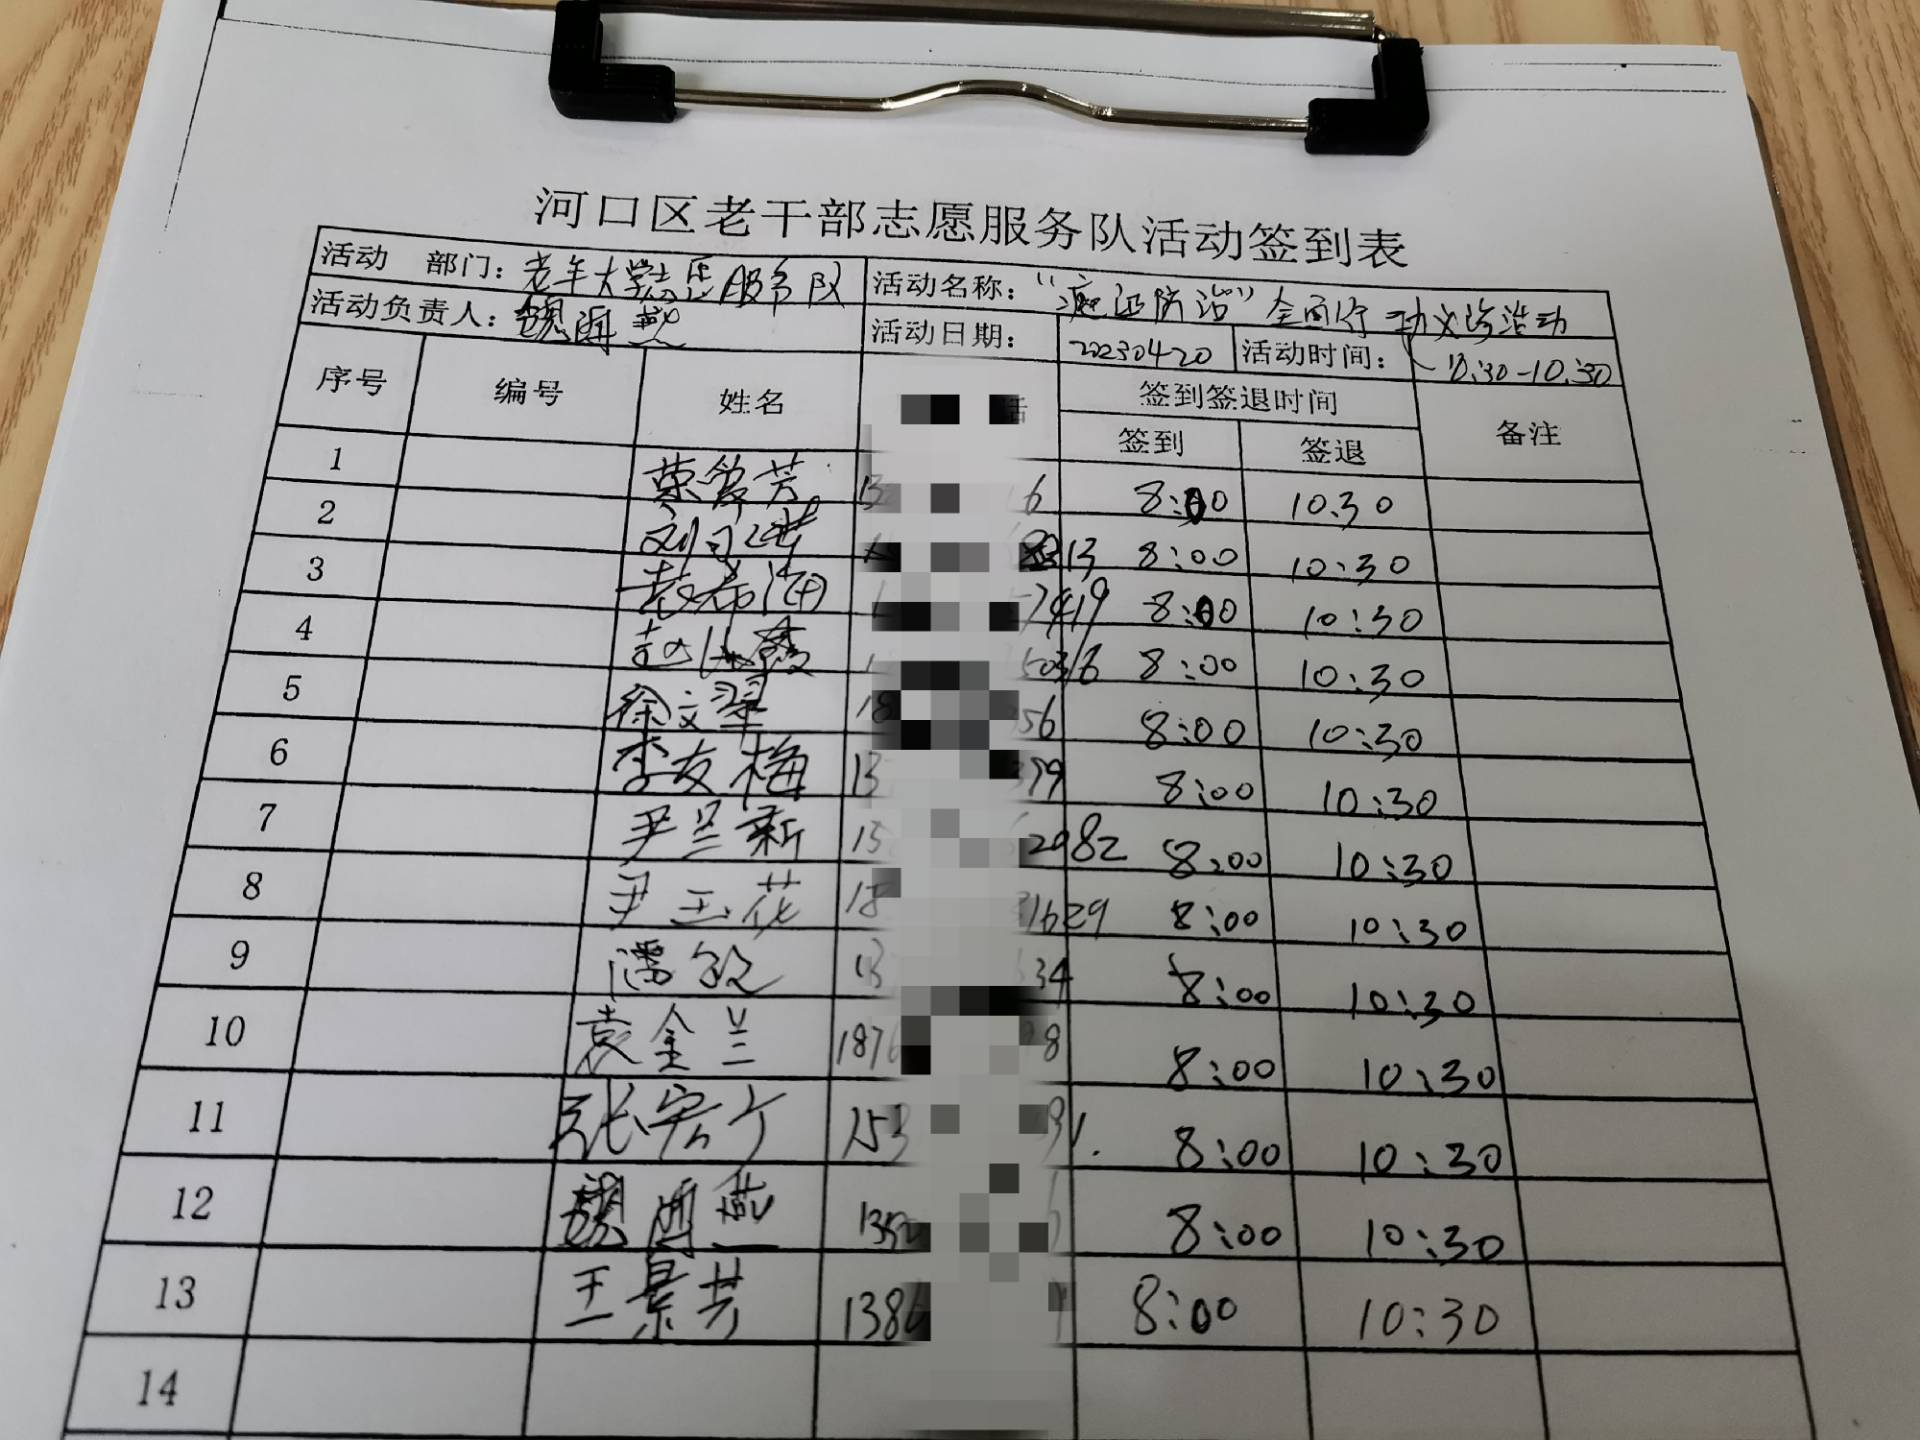 河口区老干部志愿服务队活动签到表
活动 部门：老年大学志愿服务队 活动名称：“癌症防治”全面行动义诊活动
活动负责人：魏海燕 活动日期： 20230420 活动时间： 8:30-10:30
序号 编号 姓名 话 签到签退时间 备注
签到 签退
1 芳 13 6 8:00 10:30
2 刘 13 8:00 10:30
3 7419 8:00 10:30
4 赵 5036 8:00 10:30
5 徐文翠 18 56 8:00 10:30
6 李友梅 13 379 8:00 10:30
7 尹兰新 15 2082 8:00 10:30
8 尹玉花 15 1629 8:00 10:30
9 潘敏 13 34 8:00 10:30
10 袁金兰 1876 8 8:00 10:30
11 张宏个 153 91. 8:00 10:30
12 魏海燕 13 8:00 10:30
13 王景芳 138 8:00 10:30
14